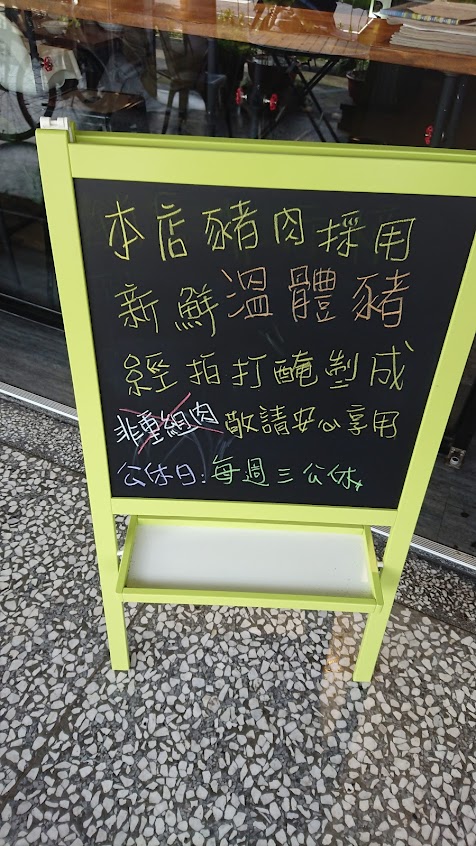 本店豬肉採用
新鮮溫體豬
經拍打醃製成
非重組肉敬請安心享用
公休日:每週三公休